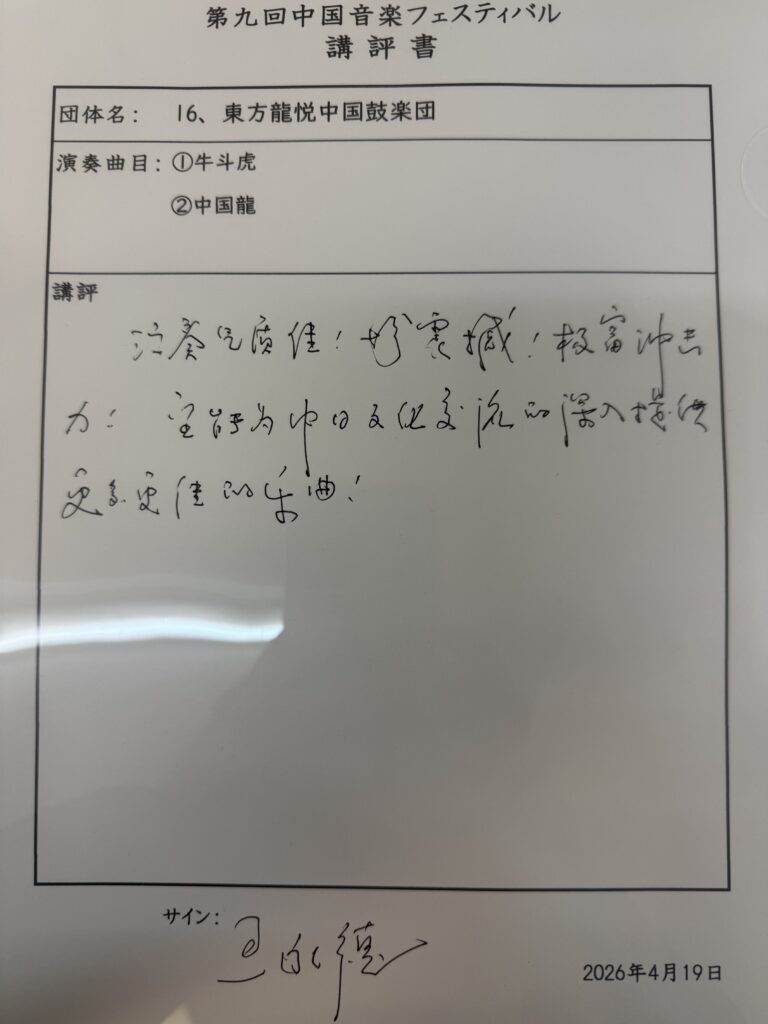 第九回中国音楽フェスティバル
講評書
団体名： 16、東方龍悦中国鼓楽団
演奏曲目：①牛斗虎
②中国龍
講評
演奏气质佳！好震撼！极富冲击
力！ 望能为中日文化交流的深入提供
更多更佳的乐曲！
サイン：
2026年4月19日